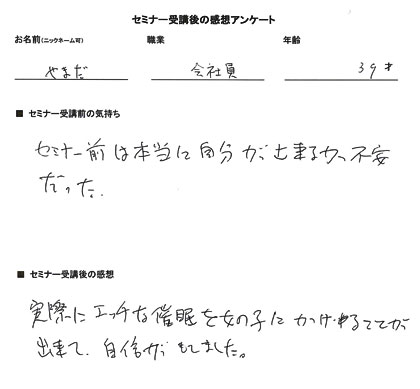 セミナー受講後の感想アンケート
お名前(ニックネーム可) 職業 年齢
やまだ 会社員 39才
■ セミナー受講前の気持ち
セミナー前は本当に自分が出来るかっ不安
だった.
■ セミナー受講後の感想
実際にエッチな催眠を女の子にかけれることが
出来て、自信がもてました。